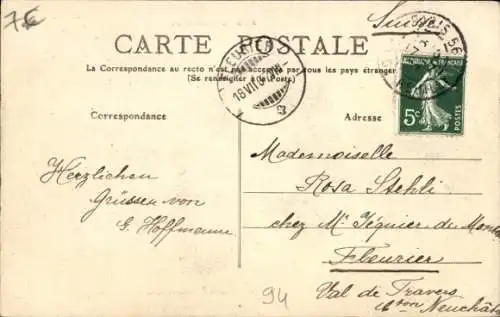 7.€
Suisse
CARTE POSTALE
La Correspondance au recto n'est pas acceptée par tous les pays étrangers
(Se renseigner à la Poste)
FLEURIER
18 VII
RÉPUBLIQUE FRANÇAISE
5c
POSTES
Correspondance
Adresse
Herzlichen
Grüssen von
G. Hoffmann
Mademoiselle
Rosa Stehli
chez Mr Jéquier de
Fleurier
Val de Travers
cton Neuchât
94